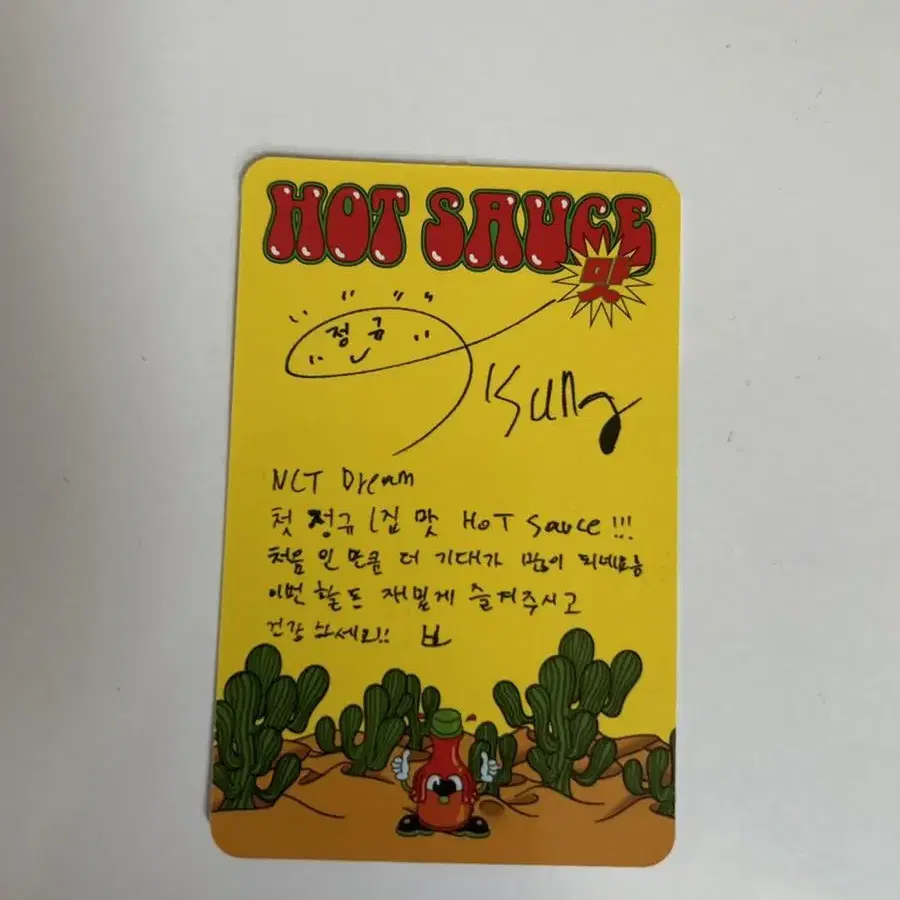 HOT SAUCE
맛
정규
NCT Dream
첫 정규 1집 맛 HOT Sauce!!!
처음 인 만큼 더 기대가 많이 되네요
이번 활동 재밌게 즐겨주시고
건강하세요!!